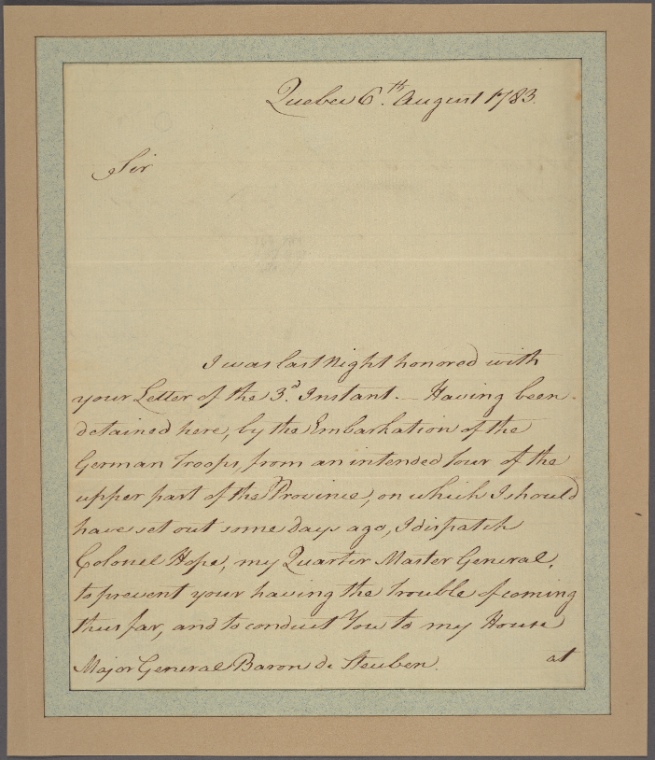 Quebec 6.th August 1783.
Sir
I was last Night honored with
your Letter of the 3.d Instant. — Having been
detained here, by the Embarkation of the
German Troops, from an intended Tour of the
upper part of the Province, on which I should
have set out some days ago, I dispatch
Colonel Hope, my Quarter Master General,
to prevent your having the Trouble of coming
thus far, and to conduct You to my House
Major General Baron de Steuben. at